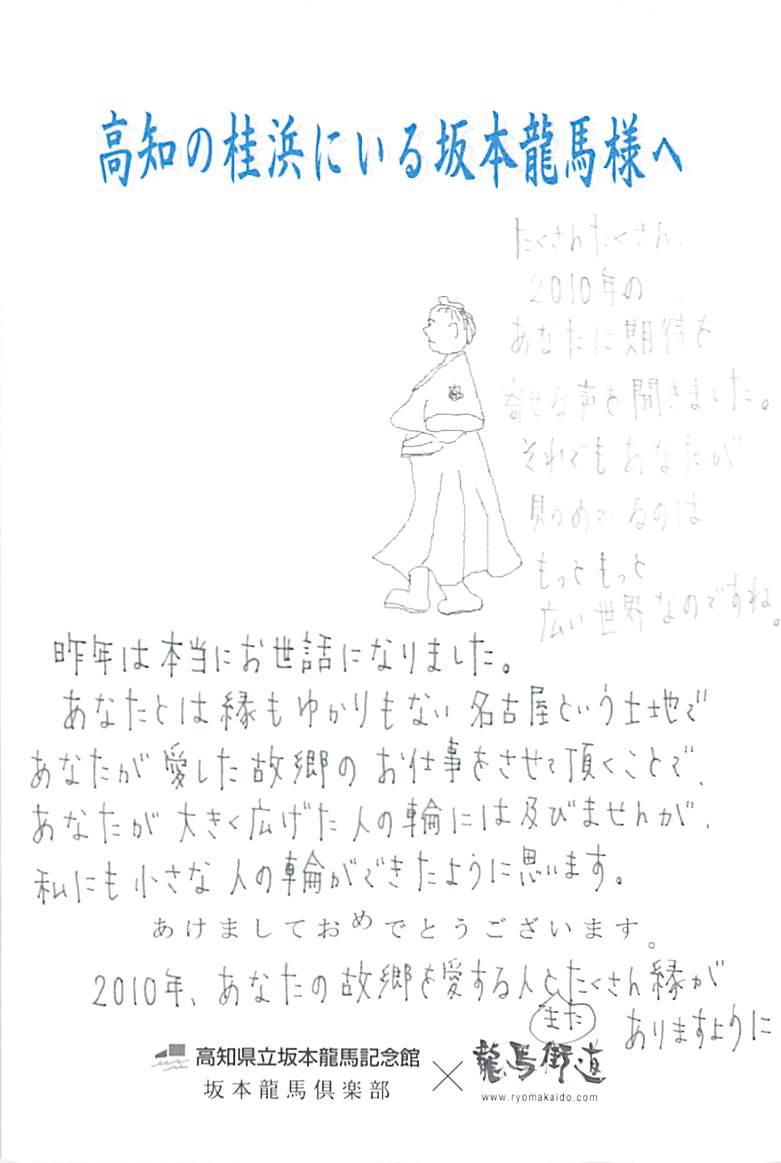 高知の桂浜にいる坂本龍馬様へ
たくさんたくさん、
2010年の
あなたに期待を
寄せる声を聞きました。
それでもあなたが
見つめているのは
もっともっと
広い世界なのですね。
昨年は本当にお世話になりました。
あなたとは縁もゆかりもない名古屋という土地で
あなたが愛した故郷のお仕事をさせて頂くことで、
あなたが大きく広げた人の輪には及びませんが、
私にも小さな人の輪ができたように思います。
あけましておめでとうございます。
2010年、あなたの故郷を愛する人とたくさん縁が
また
ありますように
高知県立坂本龍馬記念館
坂本龍馬倶楽部
×
龍馬街道
www.ryomakaido.com